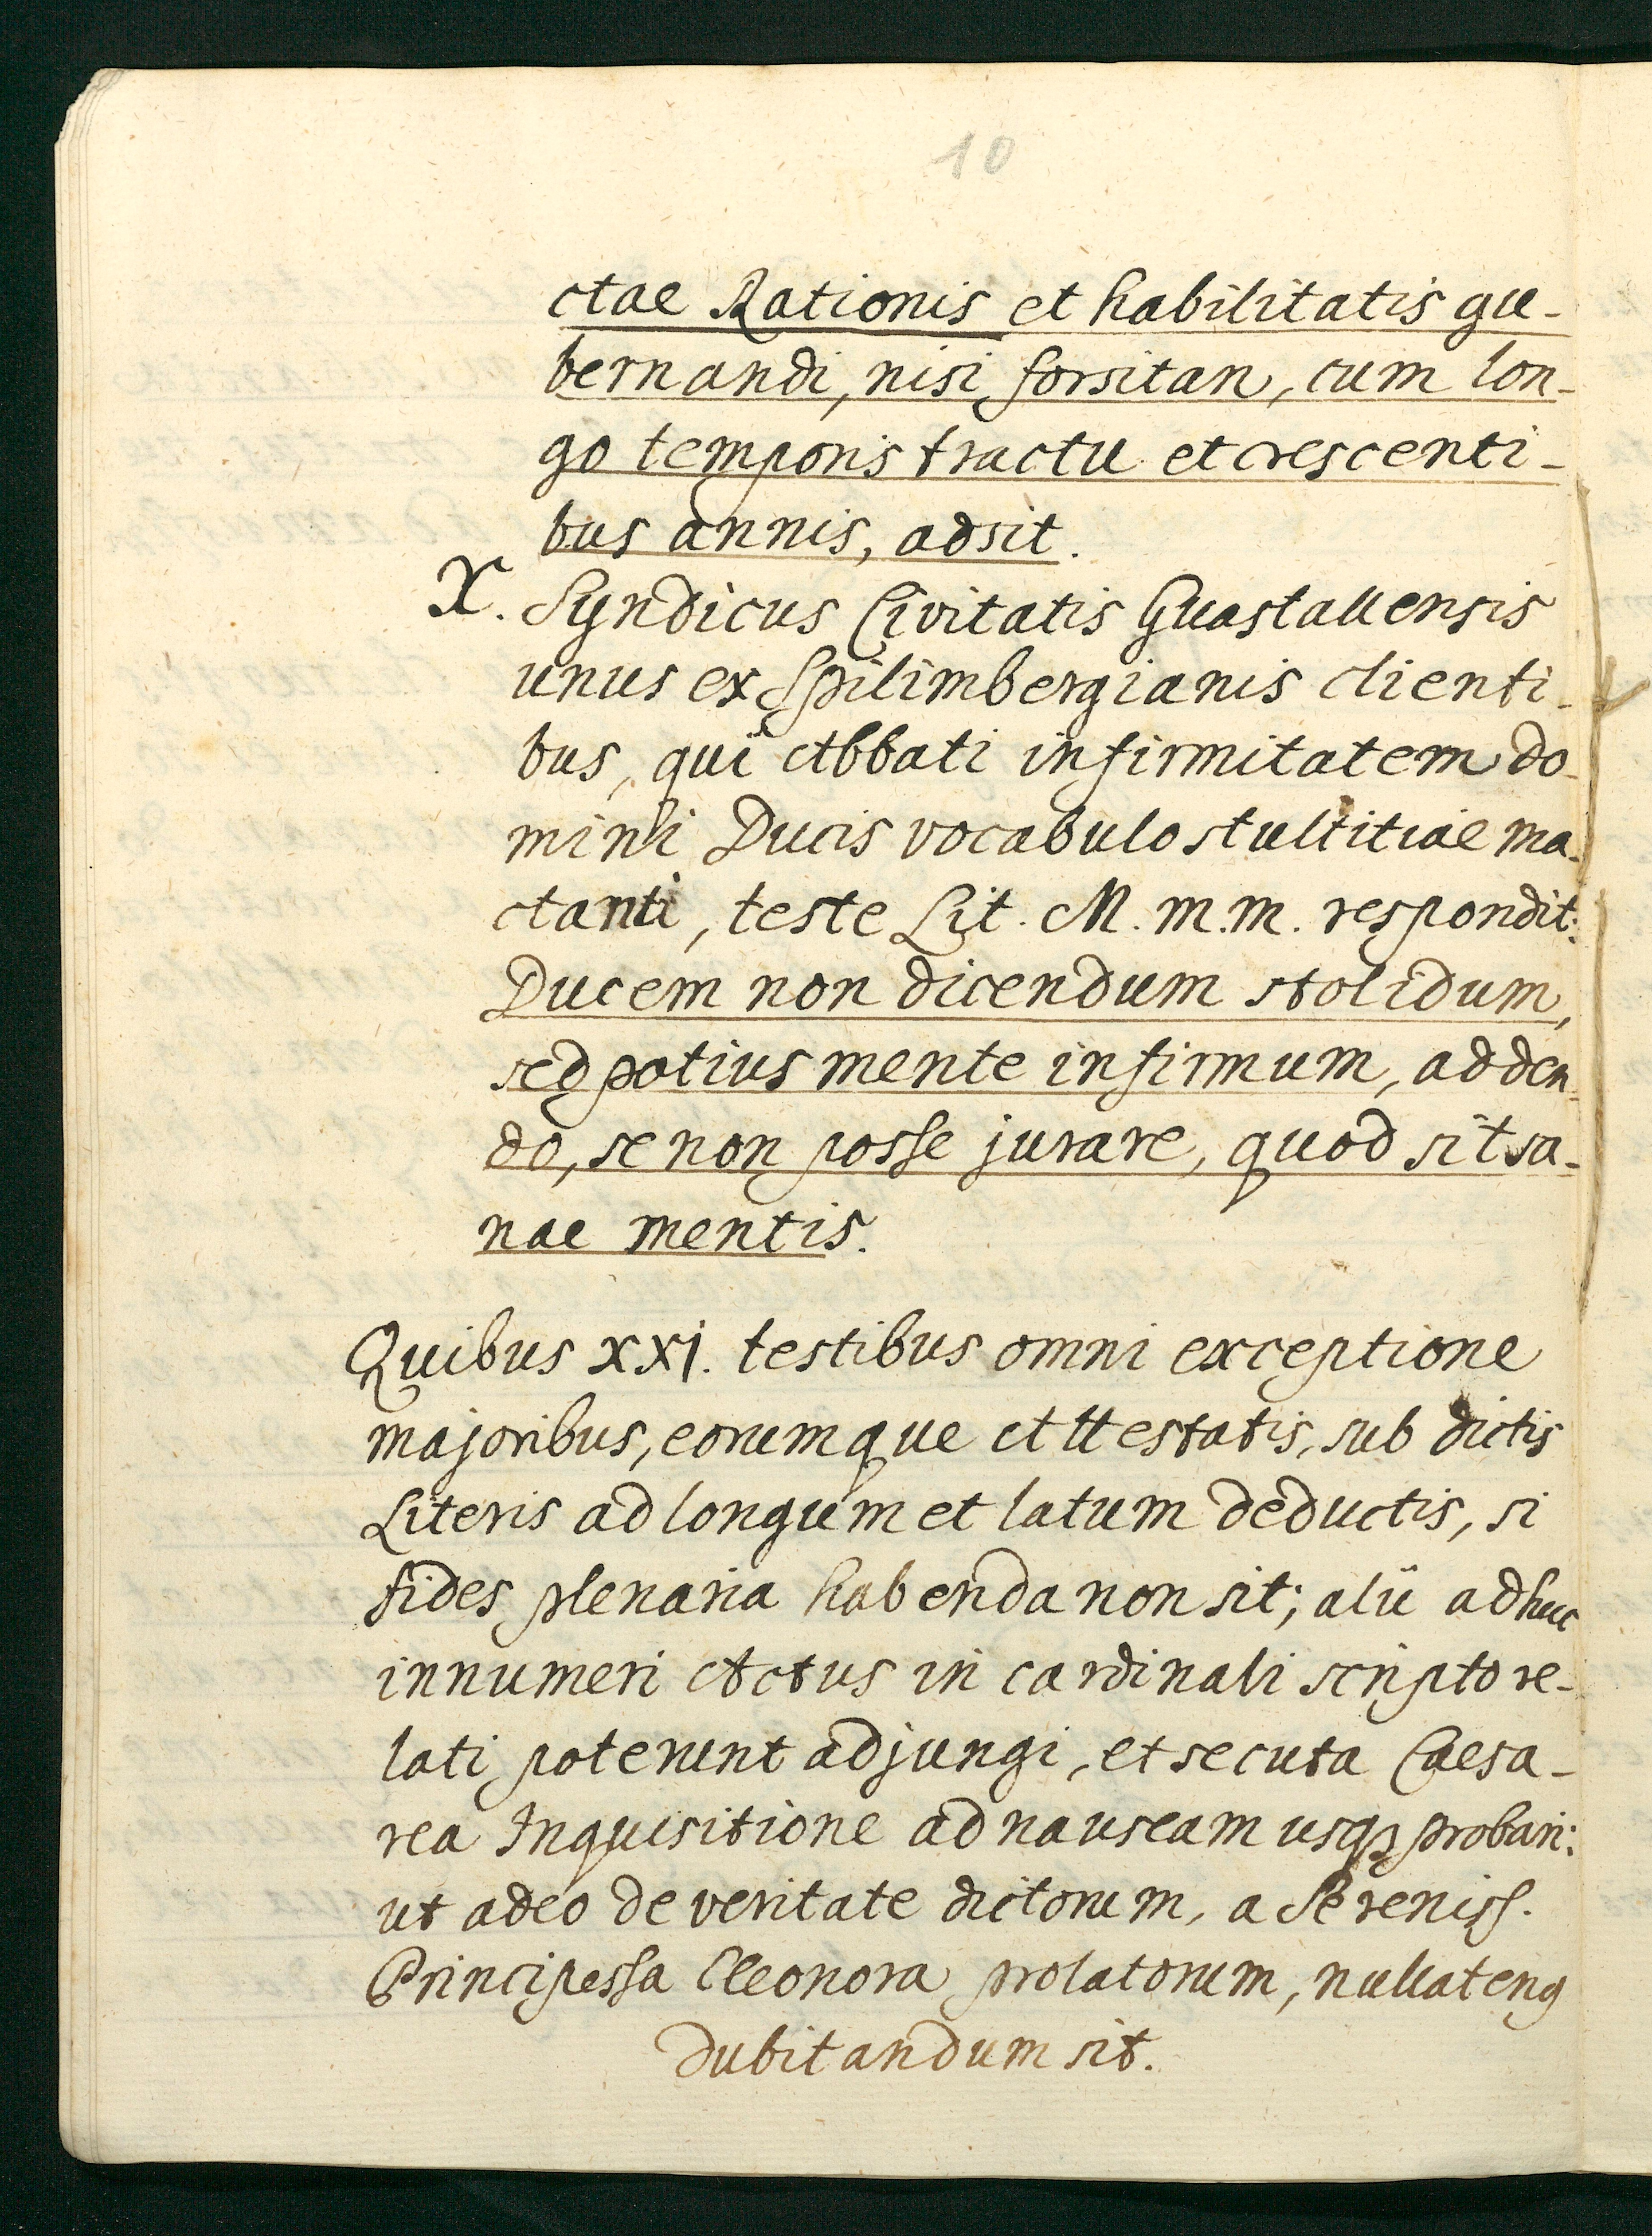 10
ctae Rationis et habilitatis gu-
bernandi, nisi forsitan, cum lon-
go temporis tractu et crescenti-
bus annis, adsit.
X. Syndicus Civitatis Guastallensis
unus ex Spilimbergianis clienti-
bus, qui Abbati infirmitatem do-
mini Ducis vocabulo stultitiae ma-
ctanti, teste Lit. M. m.m. respondit:
Ducem non dicendum stolidum,
sed potius mente infirmum, adden-
do, se non posse jurare, quod sit sa-
nae mentis.
Quibus xxj. testibus omni exceptione
majoribus, eorumque Attestatis, sub dictis
Literis ad longum et latum deductis, si
fides plenaria habenda non sit; alii adhuc
innumeri Actus in cardinali scripto re-
lati poterunt adjungi, et secuta Caesa-
rea Inquisitione ad nauseam usq₃ probari:
ut adeo de veritate dictorum, a Sereniss.
Principessa Eleonora prolatorum, nullateng
dubitandum sit.